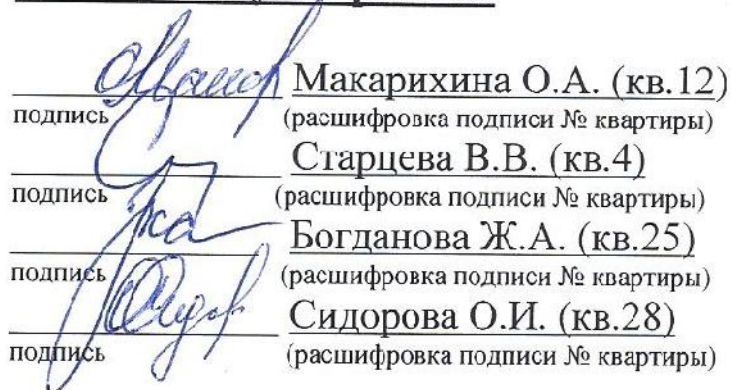 Макарихина О.А. (кв.12)
подпись (расшифровка подписи № квартиры)
Старцева В.В. (кв.4)
подпись (расшифровка подписи № квартиры)
Богданова Ж.А. (кв.25)
подпись (расшифровка подписи № квартиры)
Сидорова О.И. (кв.28)
подпись (расшифровка подписи № квартиры)